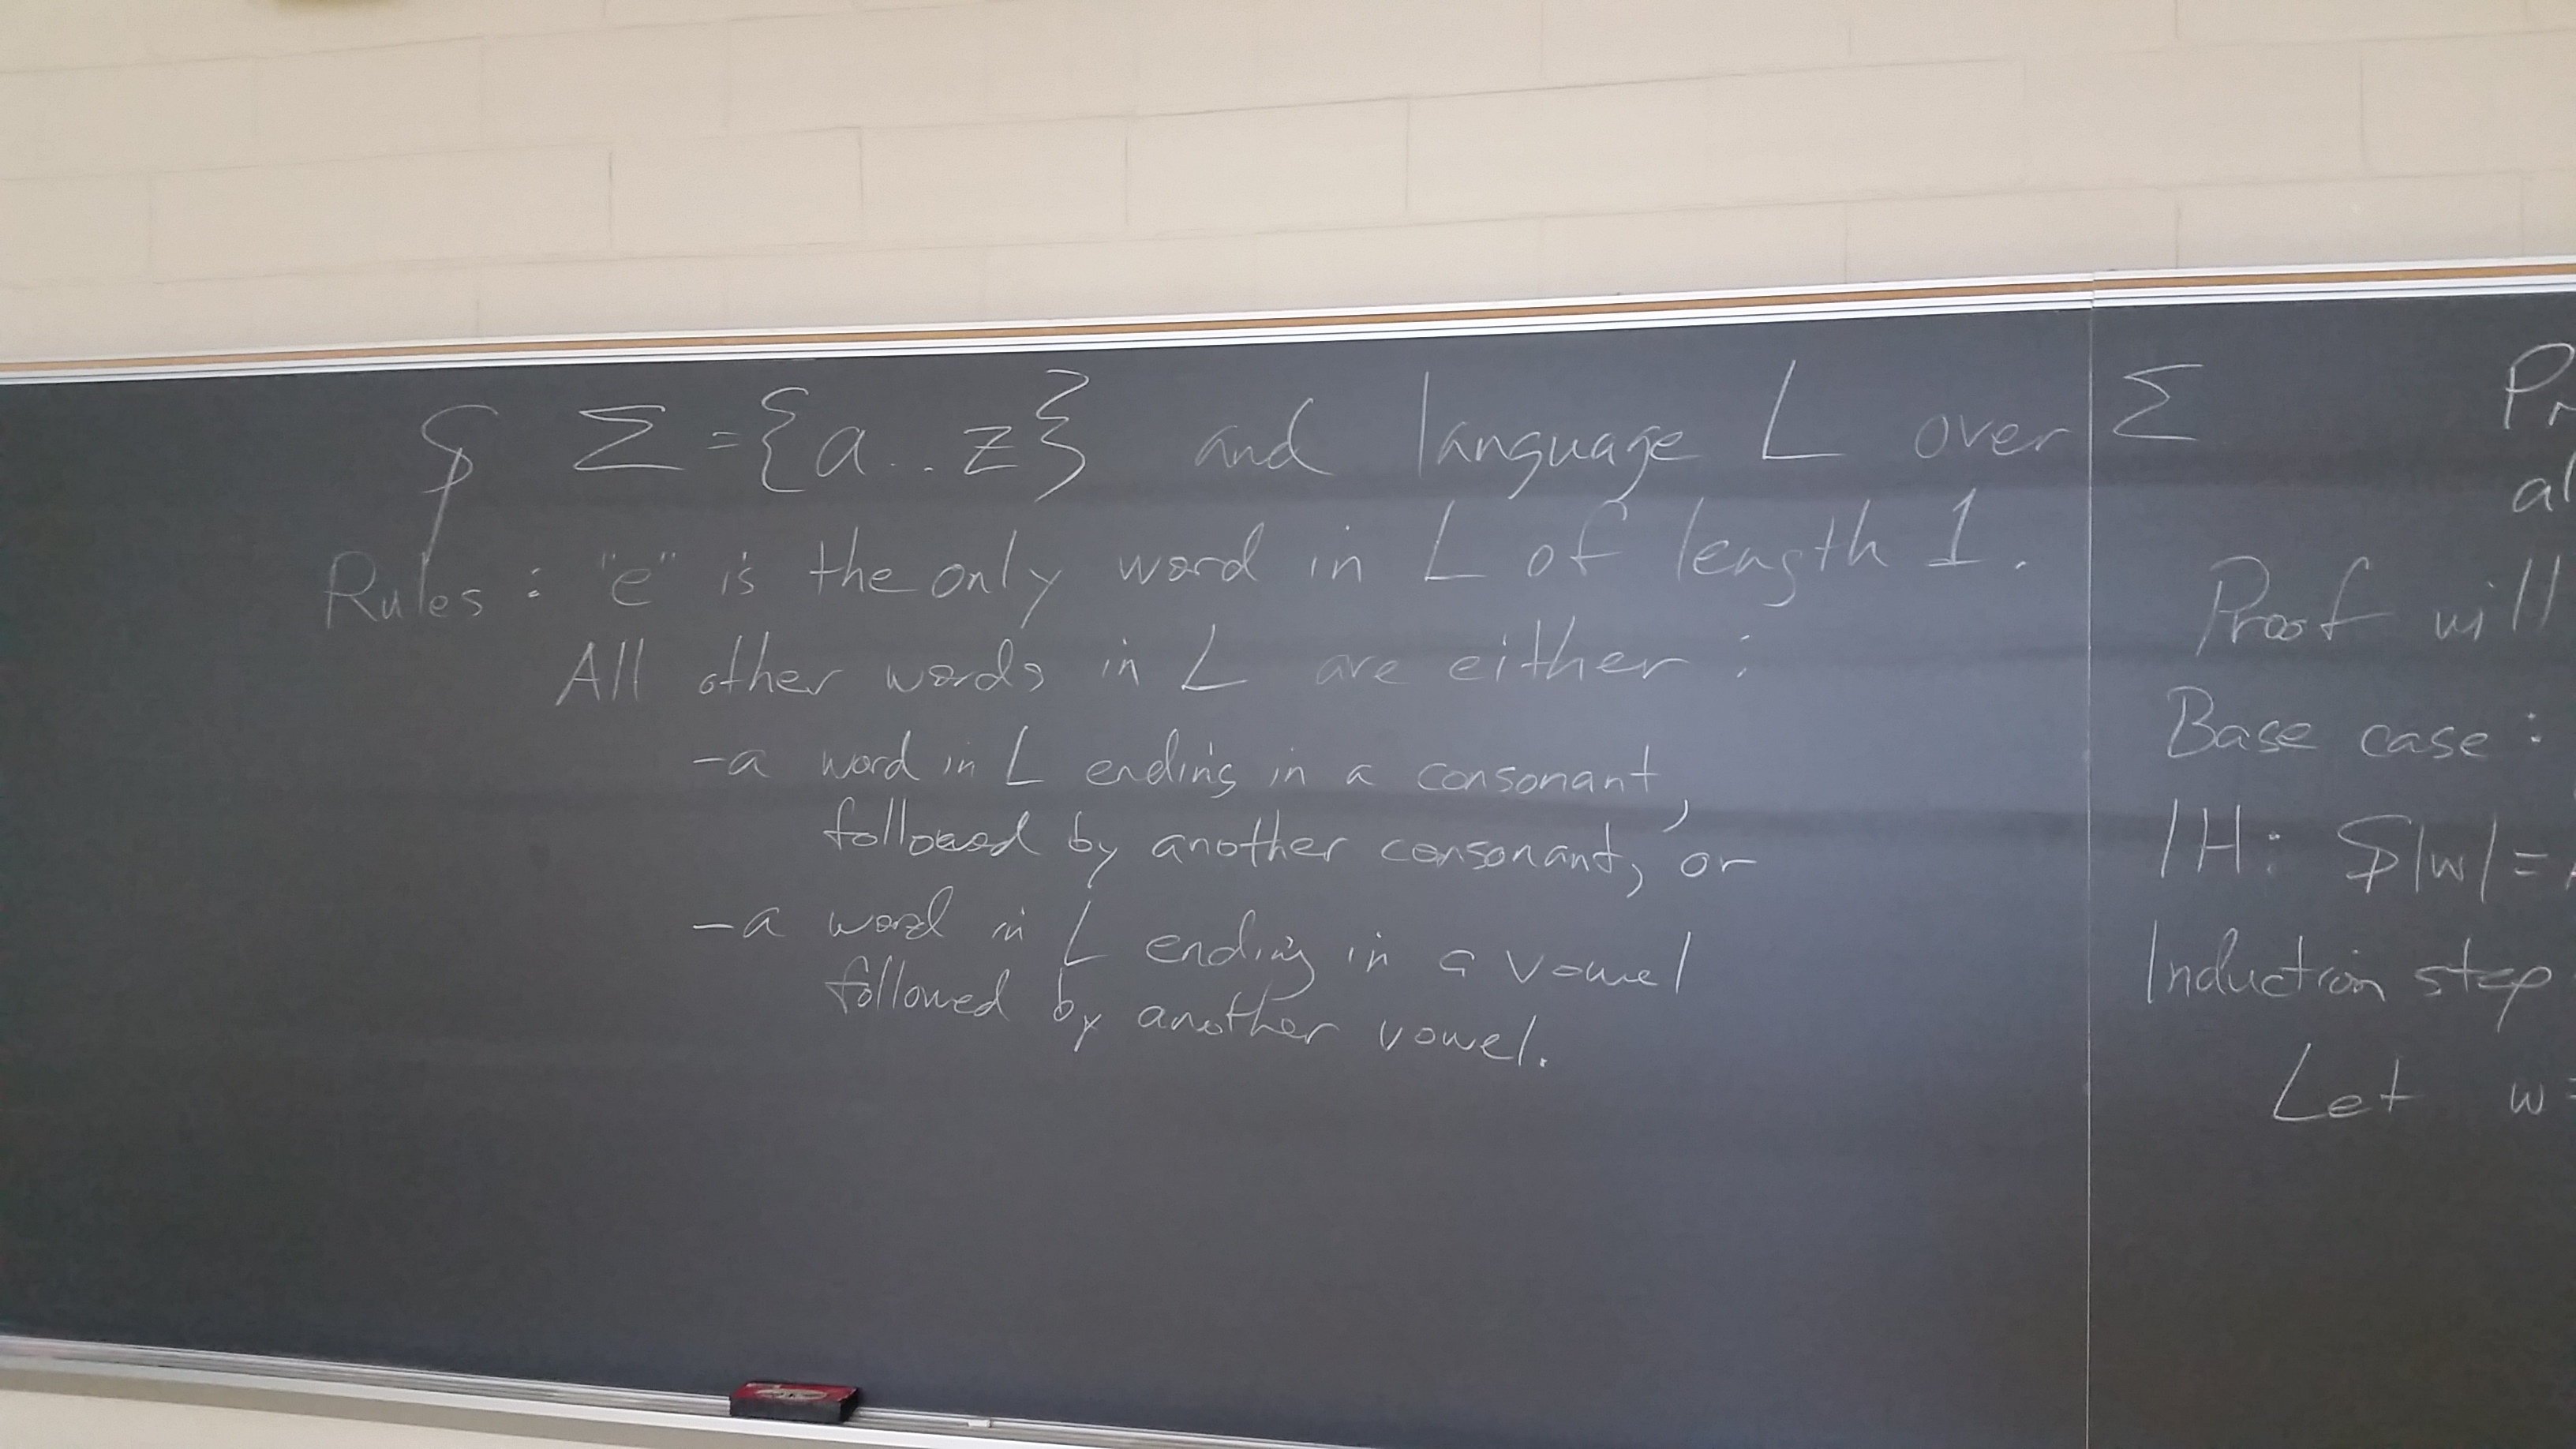 $ Σ = {a..z} and language L over Σ
Rules: "e" is the only word in L of length 1.
All other words in L are either:
-a word in L ending in a consonant,
followed by another consonant, or
-a word in L ending in a vowel
followed by another vowel.
Proof will
Base case:
IH: $|w| =
Induction step
Let w =